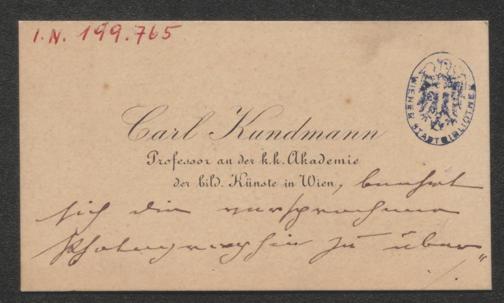 I.N. 199.765
WIENER STADTBIBLIOTHEK
Carl Kundmann
Professor an der k.k. Akademie
der bild. Künste in Wien, beehrt
sich die versprochene
Photographie zu über"